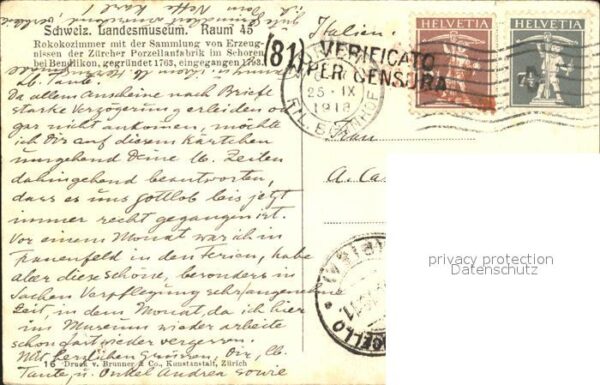 Schweiz. Landesmuseum. Raum 45
Rokokozimmer mit der Sammlung von Erzeug-
nissen der Zürcher Porzellanfabrik im Schoren
bei Bendlikon, gegründet 1763, eingegangen 1793.
Da allem Anscheine nach Briefe
starke Verzögerung erleiden od.
gar nicht ankommen, möchte
ich Dir auf diesem Kärtchen
umgehend Deine lb. Zeilen
dahingehend beantworten,
dass es uns gottlob bis jetzt
immer recht gegangen ist.
Vor einem Monat war ich in
Frauenfeld in den Ferien, habe
aber diese schöne, besonders in
Sachen Verpflegung sehr angenehme
Zeit in dem Monat, da ich hier
im Museum wieder arbeite
schon fast wieder vergessen.
Mit herzlichen Grüssen, Dir, lb.
Tante, u. Onkel Andrea sowie
16 Druck v. Brunner & Co., Kunstanstalt, Zürich
Italien.
(81) VERIFICATO
PER CENSURA
25 - IX
1918
FIL. BAHNHOF
HELVETIA
HELVETIA
7½
Frau
A. Ca
privacy protection
Datenschutz